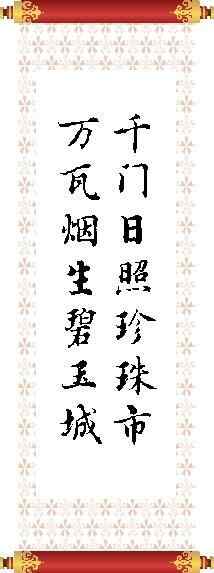 千门日照珍珠市
万瓦烟生碧玉城